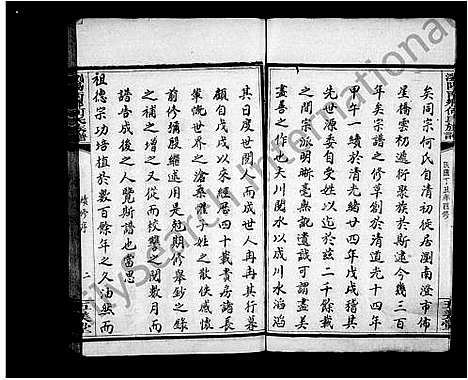 矣同宗何氏自清初徙居瀏南澄市佈
星僑雲初遞衍聚族於斯迄今幾三百
年矣宗譜之修草創於清道光十四年
甲午一續於清光緒廿四年戊戌稽其
先世源委自受姓以迄於茲二千餘載
之間宗派明晰毫無訛遺誠可謂盡美
盡善之作也夫川閱水以成川水滔滔
其日度世閱人而成世人冉冉其行暮
顧自戊戌以來經卷四十載貴房諸長
輩慨世界之滄桑羅子姓之散佚感懷
前修彌殷繼述用冠期修舉鈔之錄
之補之增之又從而校讐之閱數月而
譜告成後之人覽斯譜也當思
祖德宗功培植於數百餘年之久油然而
續修序
二
民國十五年四修
mysearch international